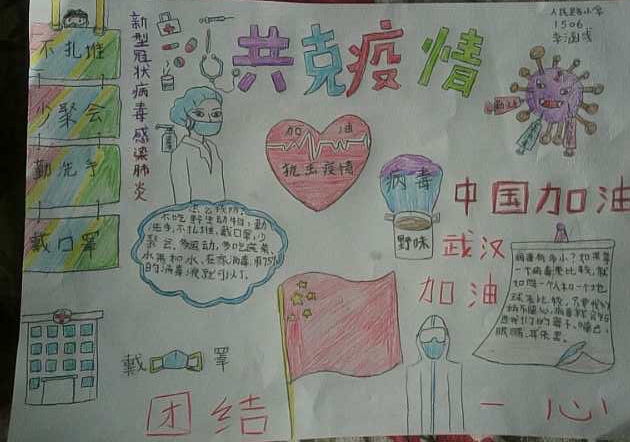 人民路小学
1506
共克疫情
新型冠状病毒感染肺炎
不扎堆
少聚会
勤洗手
戴口罩
加油
抗击疫情
病毒
野味
中国加油
武汉
加油
怎么预防:
不吃野生动物,勤
洗手,不扎堆,戴口罩,少
聚会,多运动,多吃蔬菜,
水果和水,在家消毒,用75%
的消毒液就可以了。
病毒有多小?如果拿
一个病毒来比较,就
如同一个人和一个地
球去比较,
眼睛,耳朵里。
戴 罩
团结
一心